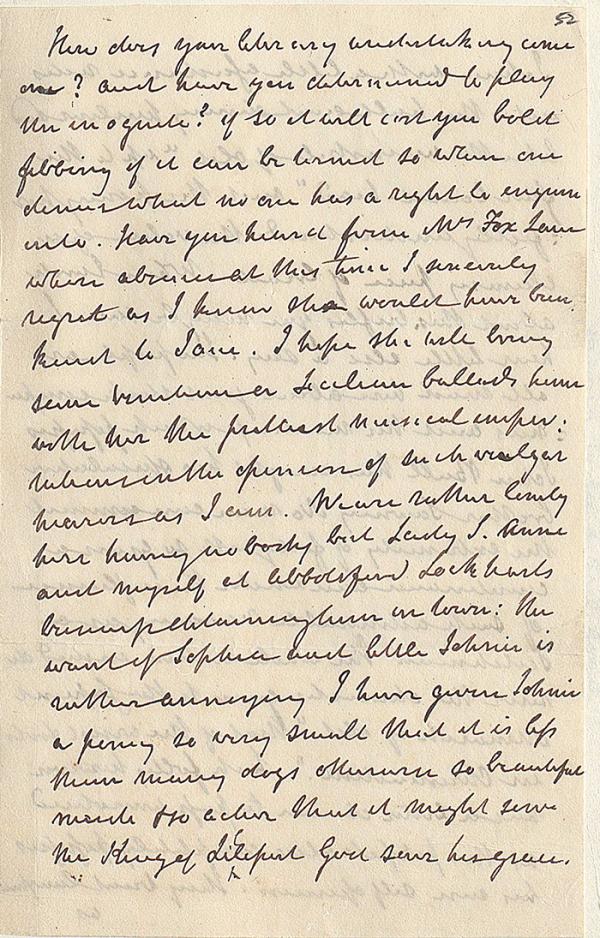 52
How does your literary undertaking come
on? and have you determined to play
the incognito? if so it will cost you a bit
fibbing if it can be termed so when one
denies what no one has a right to enquire
into. Have you heard from Mrs Fox Lane
whose absence at this time I sincerely
regret as I know she would have been
kind to Jane. I hope she will bring
some or Sicilian ballads home
with her the prettiest musical
in the opinion of such vulgar
hearers as I am. We are rather lonely
here having nobody but Lady S. Anne
and myself at Abbotsford Lockharts
business detaining him in town: the
want of Sophia and little Johnie is
rather annoying I have given Johnie
a poney so very small that it is less
than many dogs otherwise so beautifully
made & so active that it might serve
the King of Liliput God save his grace.